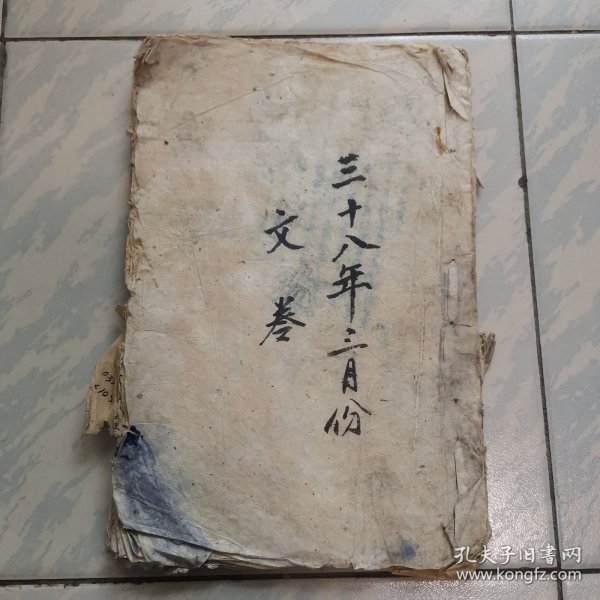 三十八年三月份
文卷
孔夫子旧書网
www.kongfz.com